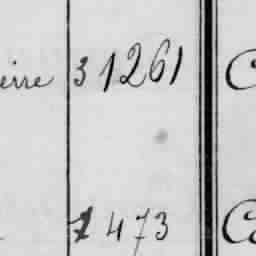 ierre 3 1261 C
1 473 Co